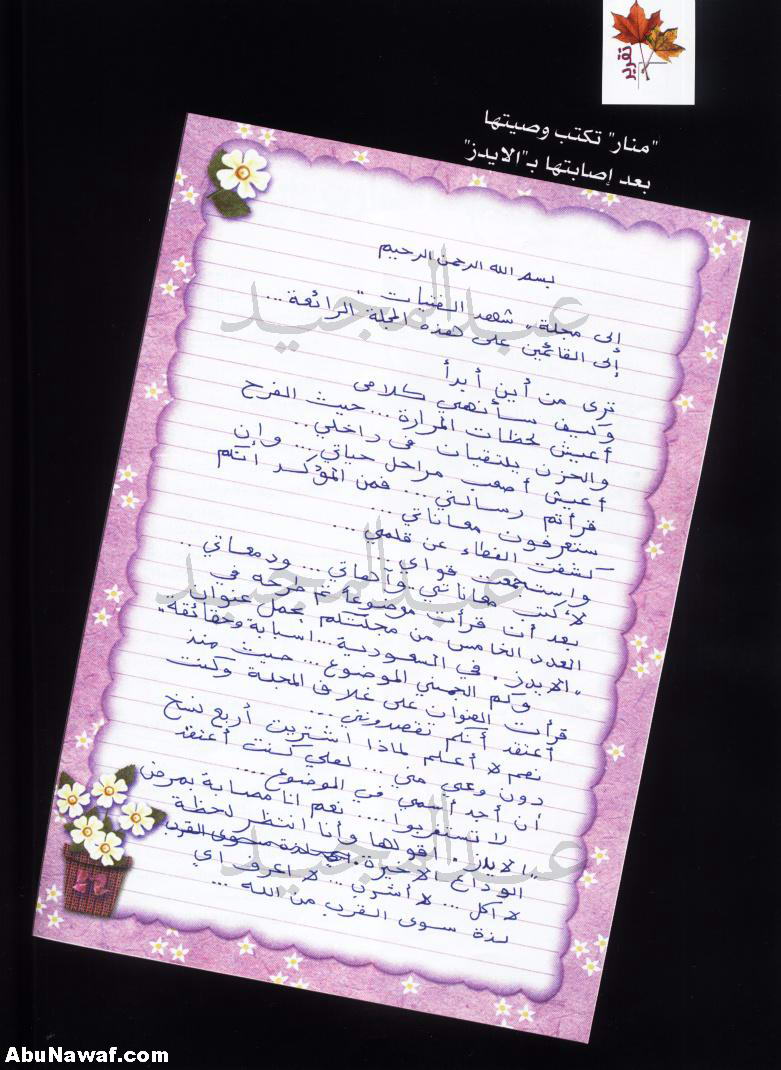 تقرير
"منار" تكتب وصيتها
بعد إصابتها بـ"الايدز"
بسم الله الرحمن الرحيم
إلى مجلة "شهد الفتيات"
إلى القائمين على هذه المجلة الرائعة...
ترى من أين أبدأ
وكيف سأنهي كلامي
أعيش لحظات المرارة... حيث الفرح
والحزن يلتقيان في داخلي..
أعيش أصعب مراحل حياتي... وإن
قرأتم رسالتي... فمن المؤكد انكم
ستعرفون معاناتي...
كشفت الغطاء عن قلمي...
واستجمعت قواي
لأكتب معاناتي وآهاتي... ودمعاتي..
بعد أن قرأت موضوعاً تم طرحه في
العدد الخامس من مجلتكم يحمل عنوان
"الايدز. في السعودية... اسبابه وحقائقه"
وكم الموضوع... حيث منذ
قرأت العنوان على غلاف المجلة وكنت
أعتقد أنكم تقصدونني...
نعم لا أعلم لماذا اشتريت أربع نسخ
دون وعي مني... لعلي كنت أعتقد
أن أجد أسمي في الموضوع....
لا تستغربوا.... نعم انا مصابة بمرض
"الايدز. أقولها وأنا انتظر لحظة
الوداع الأخيرة.
لا اكل... لا أشرب... لا اعرف اي
لذة سوى القرب من الله...
عبدالمجيد
عبدالمجيد
عبدالمجيد
AbuNawaf.com